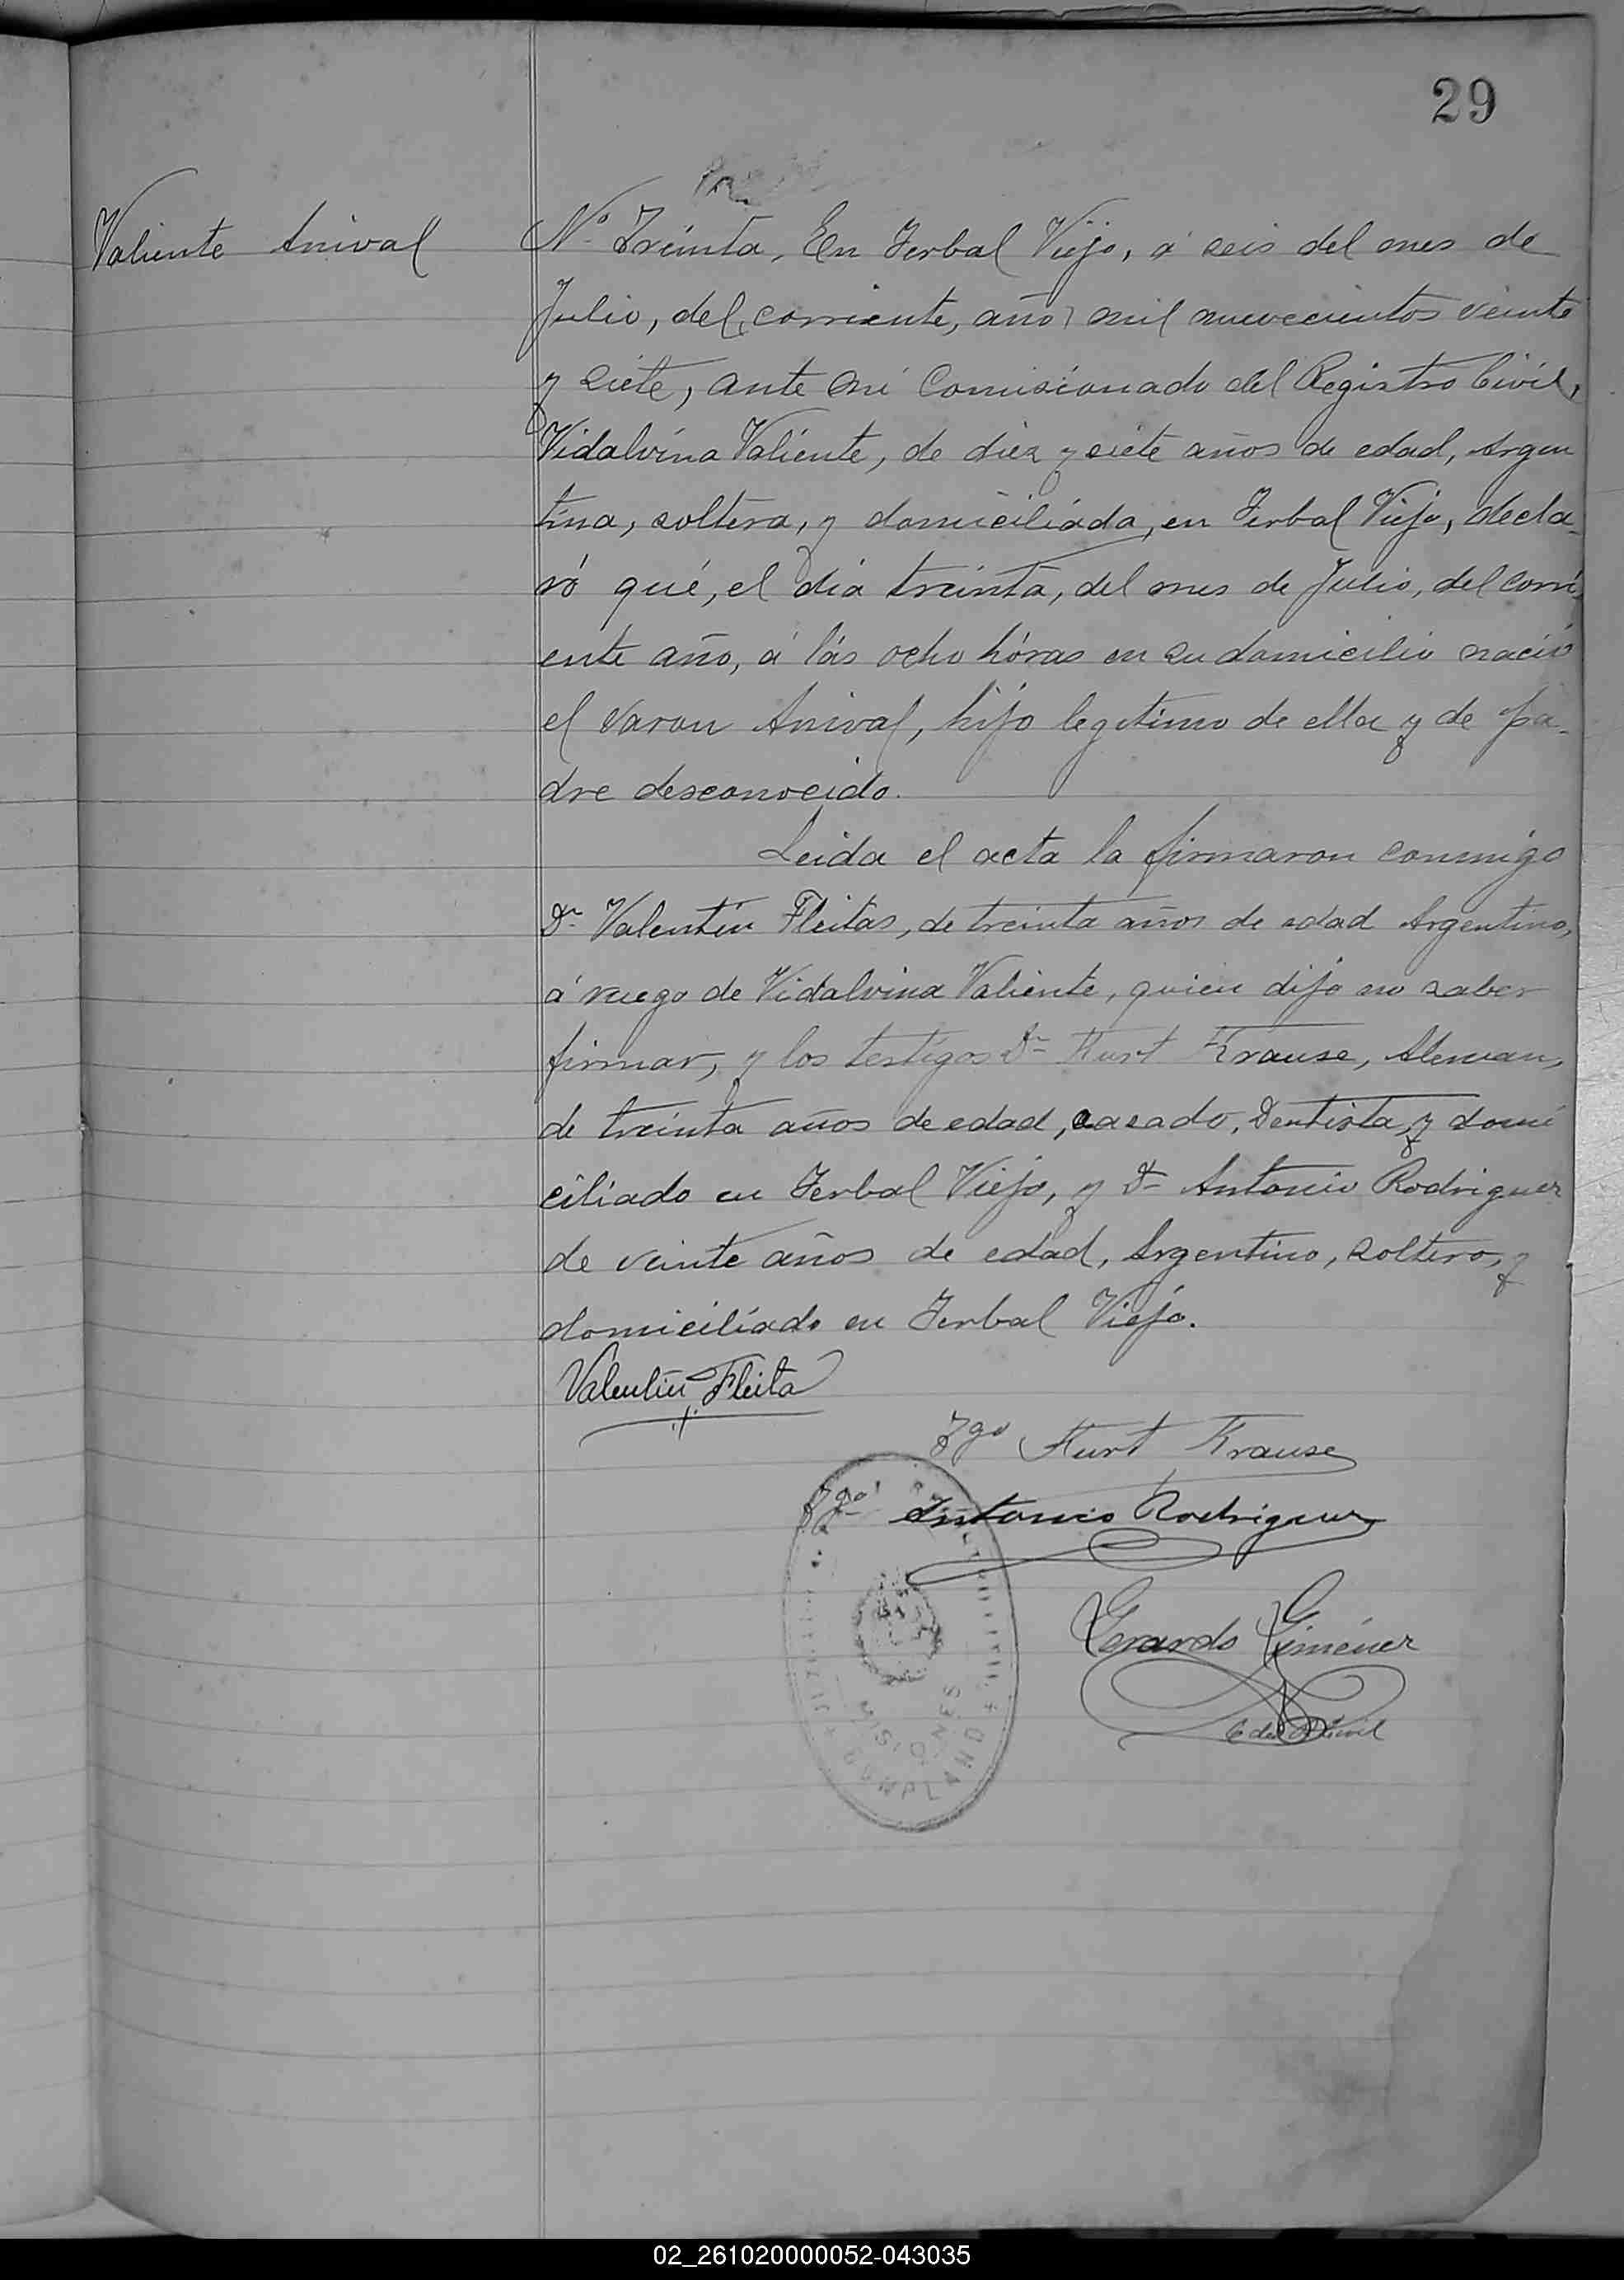 29
Valiente Anival
Nº Treinta, En Yerbal Viejo, á seis del mes de
Julio, del, corriente, año, mil nuevecientos veinte
y siete, ante mi Comisionado del Registro Civil,
Vidalvina Valiente, de diez y siete años de edad, Argen
tina, soltera, y domiciliada, en Yerbal Viejo, decla-
ró qué, el dia treinta, del mes de Julio, del corri
ente año, á lás ocho hóras en su domicilio nació
el varon Anival, hijo legitimo de ella y de pa-
dre desconocido.
Leida el acta la firmaron conmigo
Dn Valentín Fleitas, de treinta años de edad Argentino,
á ruego de Vidalvina Valiente, quien dijo no saber
firmar, y los testigos Dn Kurt Krause, Aleman,
de treinta años de edad, casado, Dentista, y domi
ciliado en Yerbal Viejo, y Dn Antonio Rodriguez
de veinte años de edad, Argentino, soltero, y
domiciliado en Yerbal Viejo.
Valentin Fleita
Tgo Kurt Krause
Tgo Antonio Rodriguez
Gerardo Giménez
C del R Civil
MISIONES
BOMPLAND
02_261020000052-043035